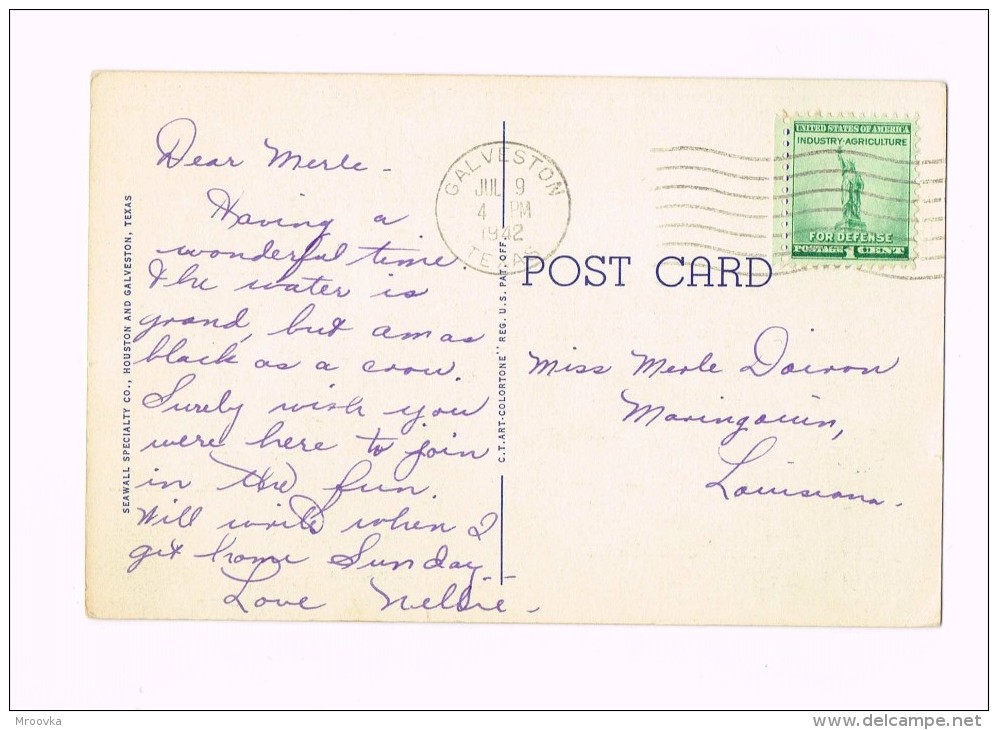 Dear Merle -
Having a
wonderful time.
The water is
grand, but am as
black as a crow.
Surely wish you
were here to join
in the fun.
Will write when I
get home Sunday.
Love Nelsie -
SEAWALL SPECIALTY CO., HOUSTON AND GALVESTON, TEXAS
C.T. ART-COLORTONE" REG. U.S. PAT. OFF.
GALVESTON
JUL 9
4 PM
1942
TEXAS
UNITED STATES OF AMERICA
INDUSTRY·AGRICULTURE
FOR DEFENSE
POSTAGE 1 CENT
POST CARD
Miss Merle Doiron
Maringouin,
Louisiana.
Mroovka
www.delcampe.net